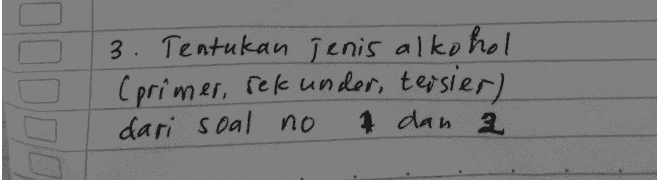 3. Tentukan jenis alkohol
(primer, sekunder, tersier)
dari soal no 1 dan 2